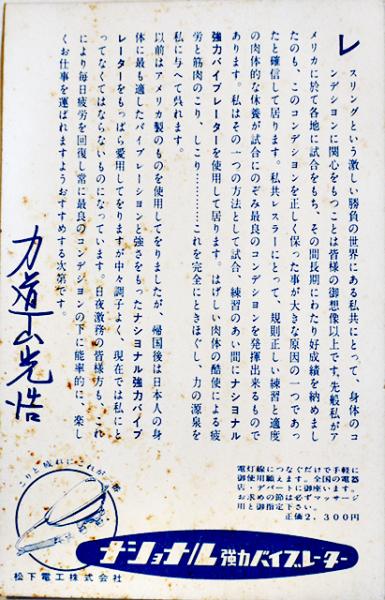 レスリングという激しい勝負の世界にある私共にとって、身体のコ
ンデションに関心をもつことは皆様の御想像以上です。先般私がア
メリカに於て各地に試合をもち、その間長期にわたり好成績を納めまし
たのも、このコンデションを正しく保った事が大きな原因の一つであっ
たと確信して居ります。私共レスラーにとって、規則正しい練習と適度
の肉体的な休養が試合にのぞみ最良のコンデションを発揮出来るもので
あります。私はその一つの方法として試合、練習のあい間にナショナル
強力バイブレーターを使用して居ります。はげしい肉体の酷使による疲
労と筋肉のこり、しこり…………これを完全にときほぐし、力の源泉を
私に与へて呉れます。
以前はアメリカ製のものを使用してをりましたが、帰国後は日本人の身
体に最も適したバイブレーションと強さをもったナショナル強力バイブ
レーターをもっぱら愛用してをりますが中々調子よく、現在では私にと
ってなくてはならないものになっています。日夜激務の皆様方も、これ
により毎日疲労を回復し常に最良のコンデションの下に能率的に、楽し
くお仕事を運ばれますようおすすめする次第です。
力道山光浩
こりと疲れにこれが一番
電灯線につなぐだけで手軽に
御使用願えます。全国の電器
店・デパートに御座います。
お求めの節は必ずマッサージ
用と御指定下さい。
正価2,300円
ナショナル強力バイブレーター
松下電工株式会社